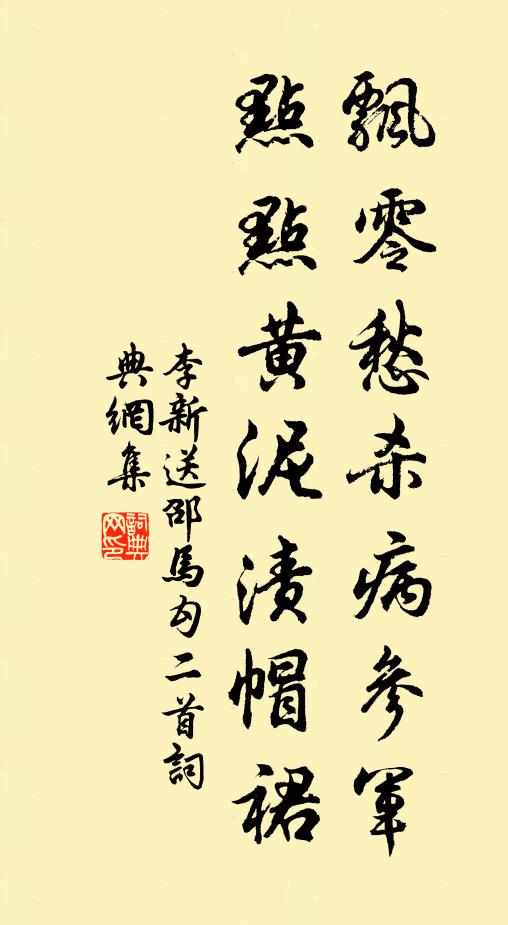 飄零愁杀病參軍
點點黃泥漬帽裙
李新送邵馬勾二首詞
典網集
詞典网印